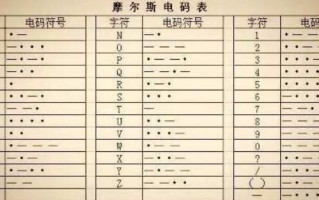 摩尔斯电码表
电码符号 字符 电码符号 字符 电码
• — N — • 1
— • • • O — — — 2
— • — • P • — — • 3
— • • Q — — • — 4
• R • — • 5
• • — • S • • • 6
— — • T — 7
• • • • U • • — 8
• • V • • • — 9
• — — — W • — — 0
— • — X — • • — ?
• — • • Y — • — — /
— — Z — — • • ( )
—